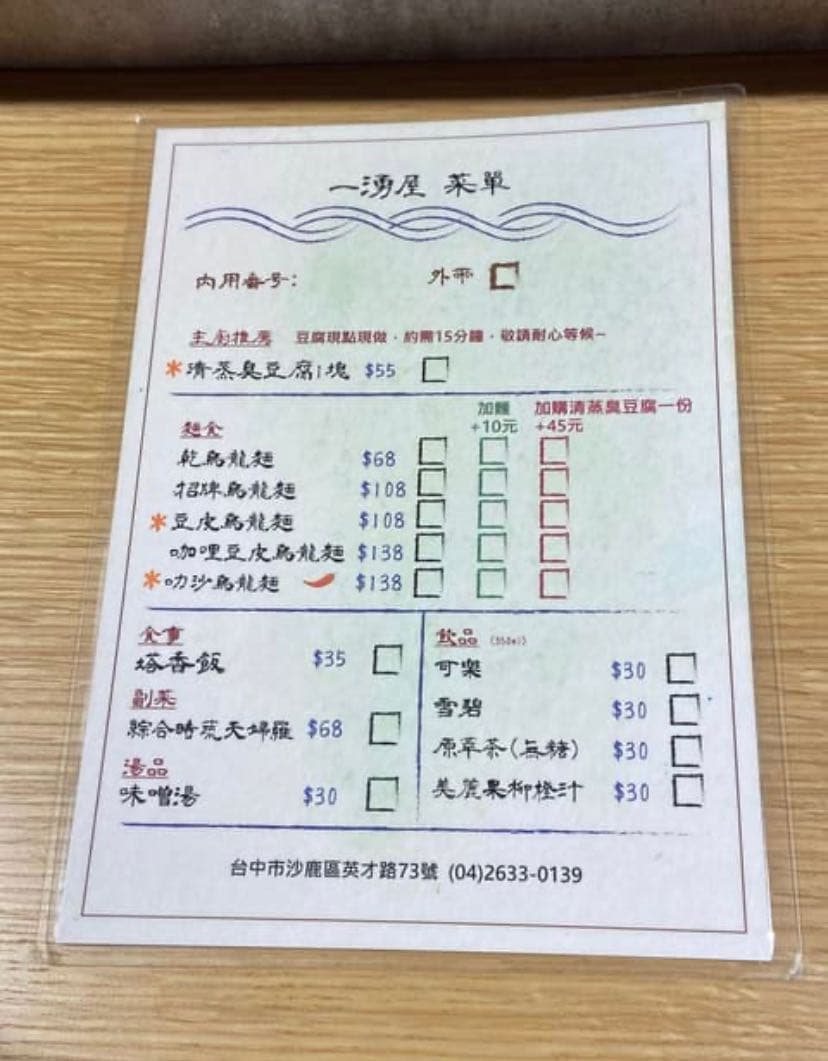 一湧屋 菜單
內用番号: 外帶
主廚推薦 豆腐現點現做，約需15分鐘，敬請耐心等候~
*清蒸臭豆腐1塊 $55
麵食 加麵 +10元 加購清蒸臭豆腐一份 +45元
乾烏龍麵 $68
招牌烏龍麵 $108
*豆皮烏龍麵 $108
咖哩豆皮烏龍麵 $138
*叻沙烏龍麵 $138
食事
塔香飯 $35
副菜
綜合時蔬天婦羅 $68
湯品
味噌湯 $30
飲品 (350ml)
可樂 $30
雪碧 $30
原萃茶(無糖) $30
美麗果柳橙汁 $30
台中市沙鹿區英才路73號 (04)2633-0139